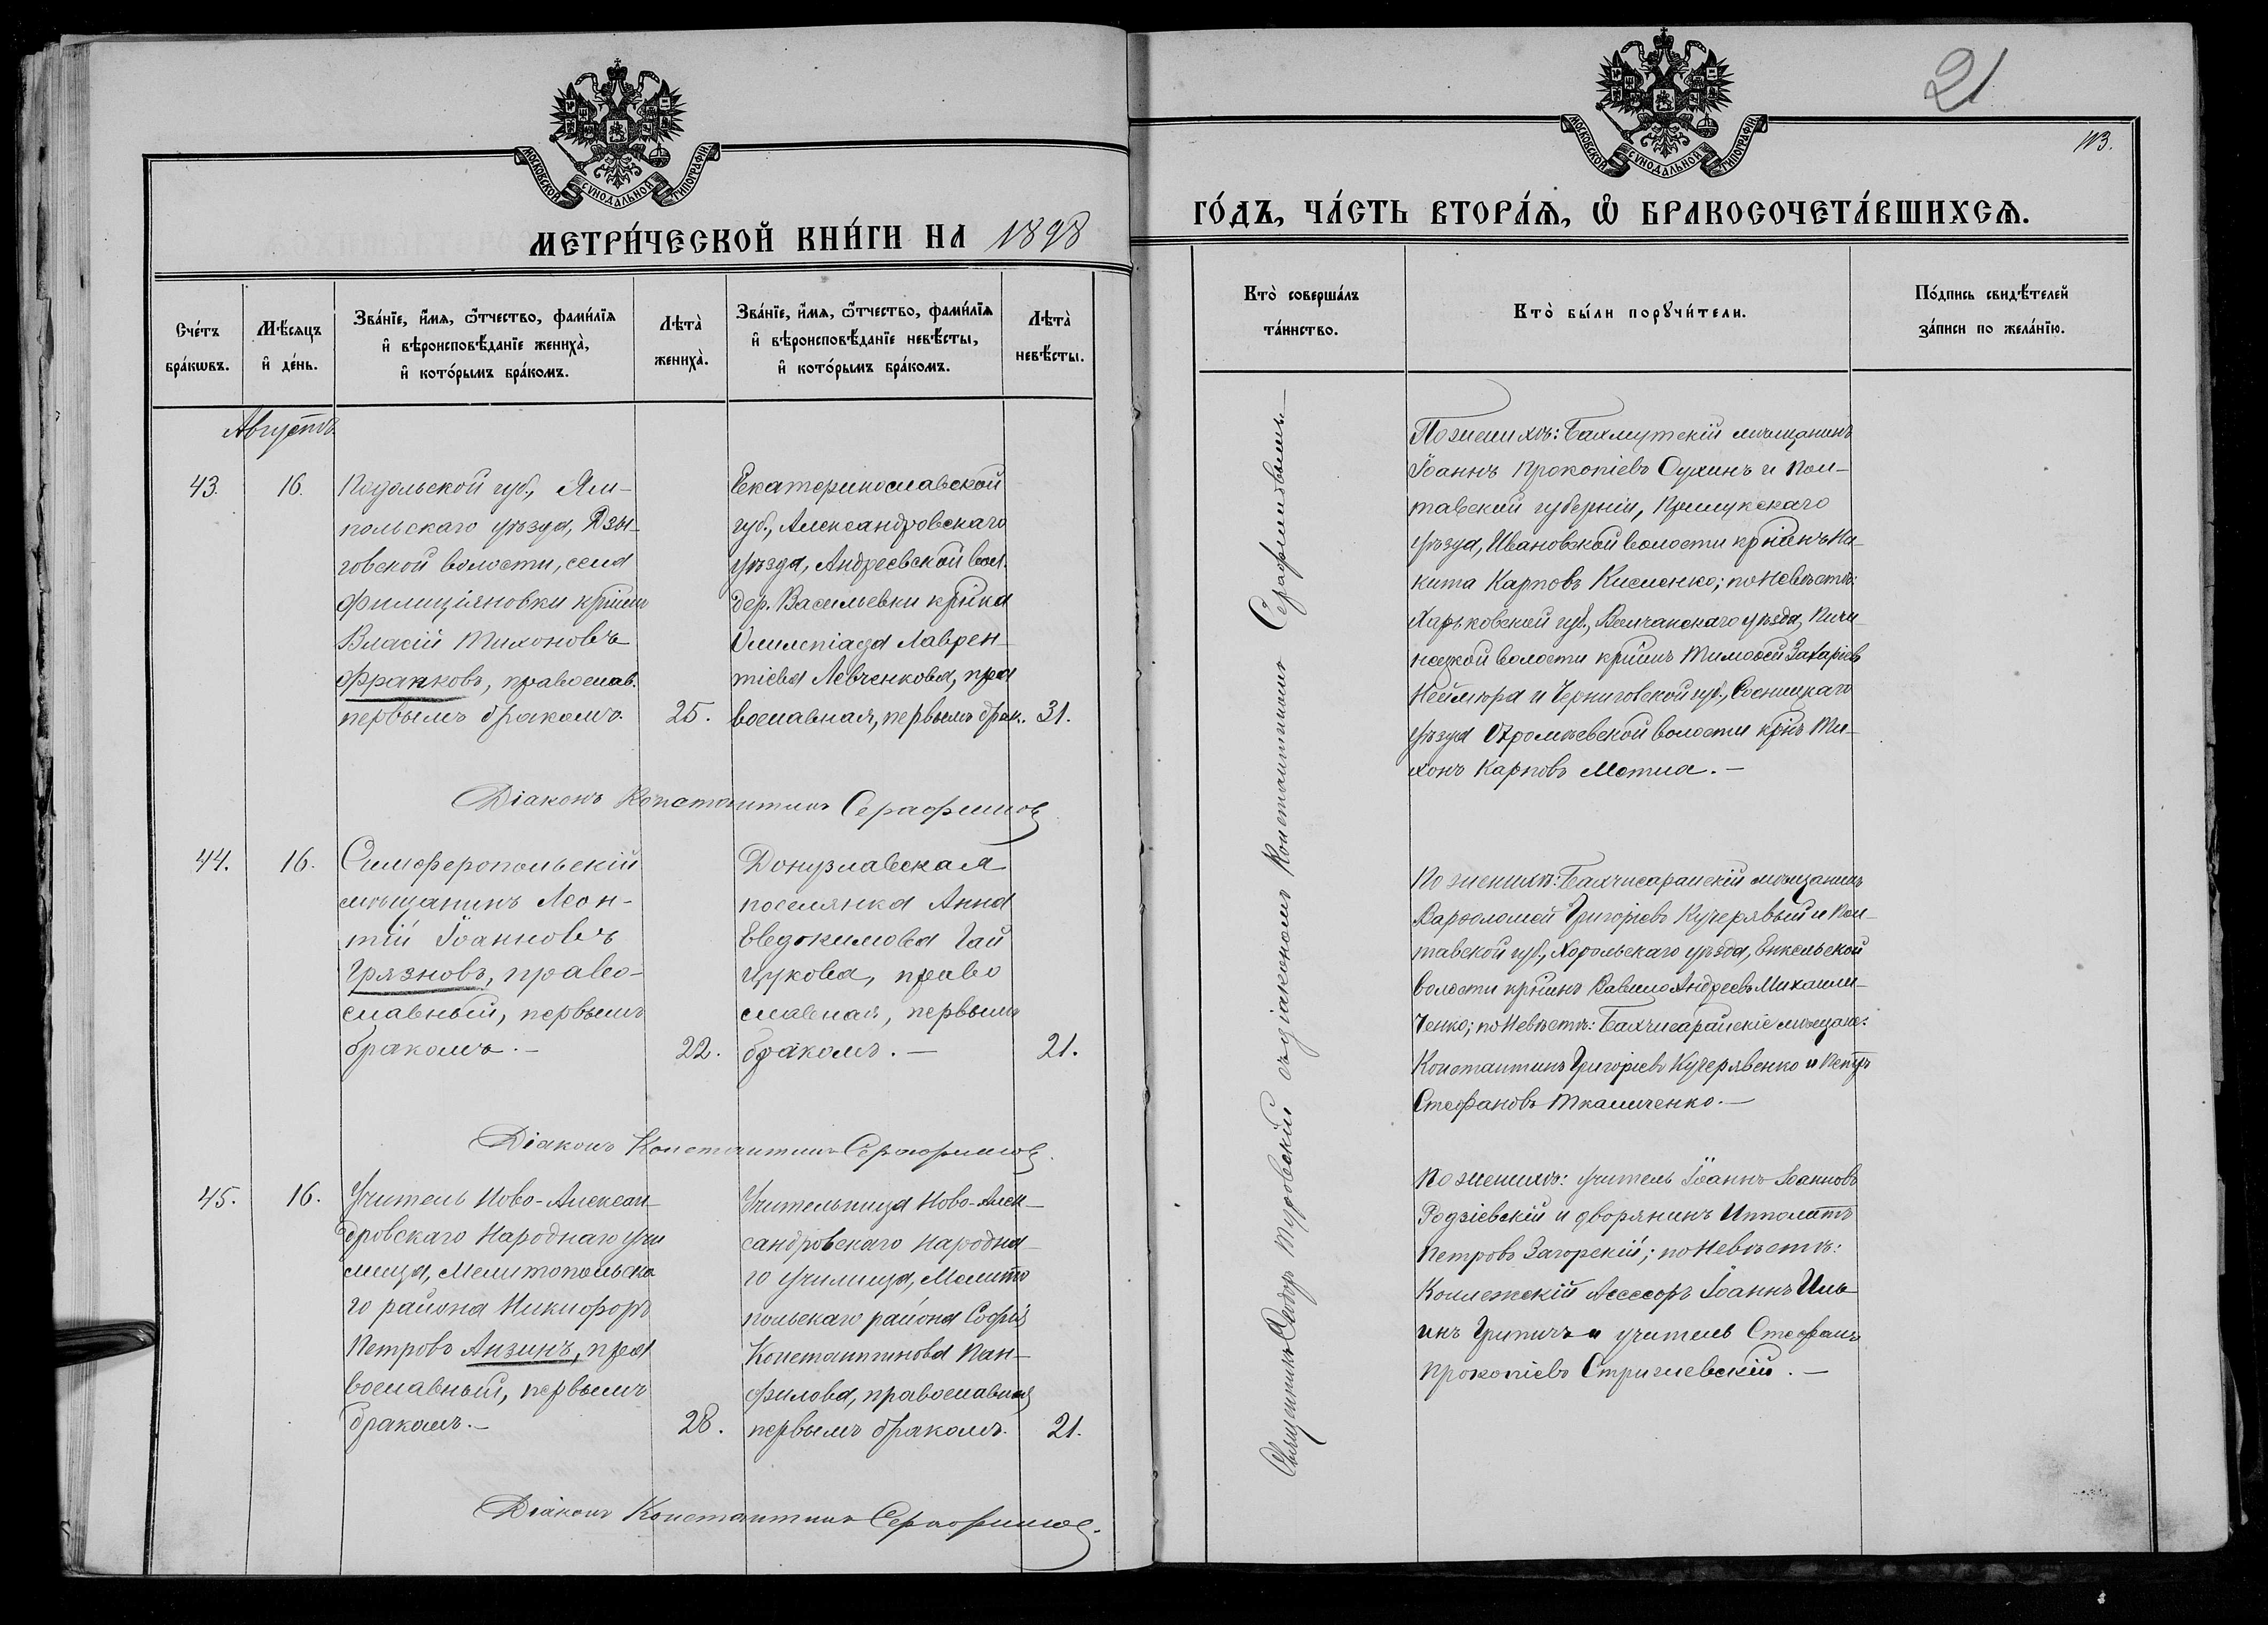 21
113.
МОСКОВСКОЙ СѴНОДАЛЬНОЙ ТИПОГРАФІИ
МОСКОВСКОЙ СѴНОДАЛЬНОЙ ТИПОГРАФІИ
МЕТРИ́ЧЕСКОЙ КНИ́ГИ НА 1898
ГО́ДЪ, ЧА́СТЬ ВТОРА́Ѧ, Ѽ БРАКОСОЧЕТА́ВШИХСѦ.
Сче́тъ
бра́кѡвъ.
Мѣ́сѧцъ
и҆ де́нь.
Зва́нїе, и҆́мѧ, ѻ҆́тчество, фами́лїѧ
и҆ вѣроисповѣ́данїе жениха̀,
и҆ кото́рымъ бра́комъ.
Лѣта̀
жениха̀.
Зва́нїе, и҆́мѧ, ѻ҆́тчество, фами́лїѧ
и҆ вѣроисповѣ́данїе невѣ́сты,
и҆ кото́рымъ бра́комъ.
Лѣта̀
невѣ́сты.
Кто̀ соверша́лъ
та́инство.
Кто̀ бы́ли порꙋчи́тели.
По́дпись свидѣ́телей
за́писи по жела́нїю.
Августъ
43.
16.
Подольской губ., Ям-
польскаго уѣзда, Дзы-
говской волости, села
Филиціяновки кр̃нинъ
Власій Тихоновъ
Франковъ, православ.
первымъ бракомъ.
25.
Екатеринославской
губ., Александровскаго
уѣзда, Андреевской вол.
дер. Васильевки кр̃нка
Олимпіада Лаврен-
тіева Левченкова, пра
вославная, первымъ брак.
31.
Діаконъ Константинъ Серафимовъ
44.
16.
Симферопольскій
мѣщанинъ Леон-
тій Іоанновъ
Грязновъ, право-
славный, первымъ
бракомъ.-
22.
Донузлавская
поселянка Анна
Евдокимова Гай
цукова, право
славная, первымъ
бракомъ.-
21.
Діаконъ Константинъ Серафимовъ.
45.
16.
Учитель Ново-Алексан-
дровскаго Народнаго Учи
лища, Мелитопольска
го района Никифоръ
Петровъ Анзинъ, пра
вославный, первымъ
бракомъ.-
28.
Учительница Ново-Алек-
сандровскаго народна-
го училища, Мелито
польскаго района Софія
Константинова Пан-
филова, православная
первымъ бракомъ.
21.
Діаконъ Константинъ Серафимовъ.
Священникъ Туровскій съ діакономъ Константиномъ Серафимовымъ-
По женихѣ: Бахмутскій мѣщанинъ
Іоаннъ Прокопіевъ Сухинъ и Пол-
тавской губерніи, Прилукскаго
уѣзда, Ивановской волости кр̃нинъ Ни-
кита Карповъ Кисленко; по Невѣстѣ:
Харьковской губ., Волчанскаго уѣзда, Печи
нежской волости кр̃нинъ Тимоѳей Захаріевъ
и Черниговской губ., Сосницкаго
уѣзда волости кр̃нъ Ти-
хонъ Карповъ Мотла.-
По женихѣ: Бахчисарайскій мѣщанинъ
Варѳоломей Григоріевъ Кучерявый и Пол-
тавской губ., Хорольскаго уѣзда,
волости кр̃нинъ Вавило Андреевъ Михаили-
ченко; по Невѣстѣ: Бахчисарайскіе мѣщане:
Константинъ Григоріевъ Кучерявенко и Петръ
Стефановъ Ткаличенко.-
По женихѣ: учитель Іоаннъ Іоанновъ
Родзіевскій и дворянинъ Ипполитъ
Петровъ Загорскій; по Невѣстѣ:
Коллежскій Ассесоръ Іоаннъ Иль
инъ Грипичъ и учитель Стефанъ
Прокопіевъ Стрижевскій.-